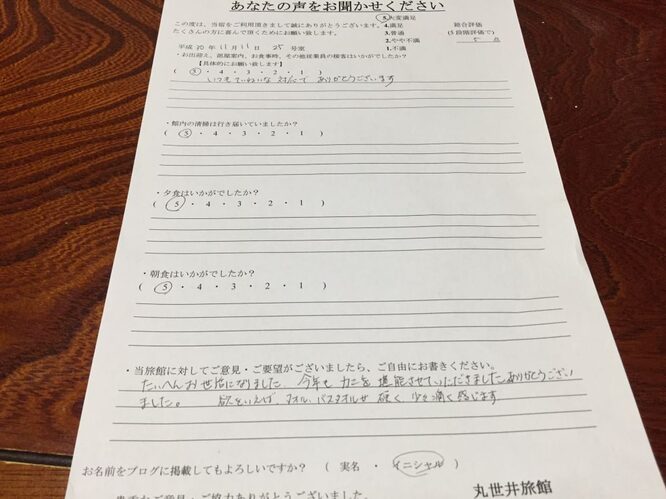 あなたの声をお聞かせください
この度は、当宿をご利用頂きまして誠にありがとうございます。
たくさんの方に喜んで頂くためにお願い致します。
5.大変満足
4.満足
3.普通
2.やや不満
1.不満
総合評価
(5段階評価で)
5 点
平成 30 年 11 月 11 日 25 号室
・お出迎え、部屋案内、お食事時、その他従業員の接客はいかがでしたか?
【具体的にお願い致します】
( 5 ・ 4 ・ 3 ・ 2 ・ 1 )
いつもていねいな対応で ありがとうございます
・館内の清掃は行き届いていましたか?
( 5 ・ 4 ・ 3 ・ 2 ・ 1 )
・夕食はいかがでしたか?
( 5 ・ 4 ・ 3 ・ 2 ・ 1 )
・朝食はいかがでしたか?
( 5 ・ 4 ・ 3 ・ 2 ・ 1 )
・当旅館に対してご意見・ご要望がございましたら、ご自由にお書きください。
たいへんお世話になりました。今年も カニを 堪能させていただきました ありがとうござい
ました。 欲をいえば、タオル、バスタオルが 硬く、少々痛く感じます
お名前をブログに掲載してもよろしいですか? ( 実名 ・ イニシャル )
貴重なご意見・ご協力ありがとうございました。
丸世井旅館